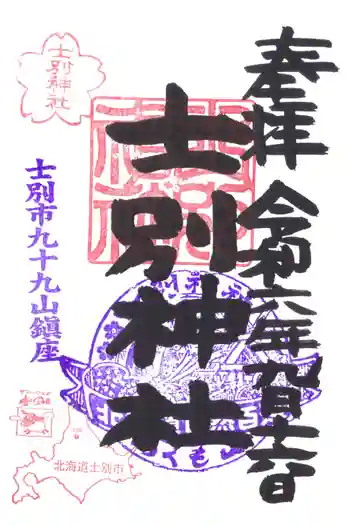 奉拝 令和六年九月十六日
士別神社
士別神社
士別市九十九山鎮座
北海道士別市